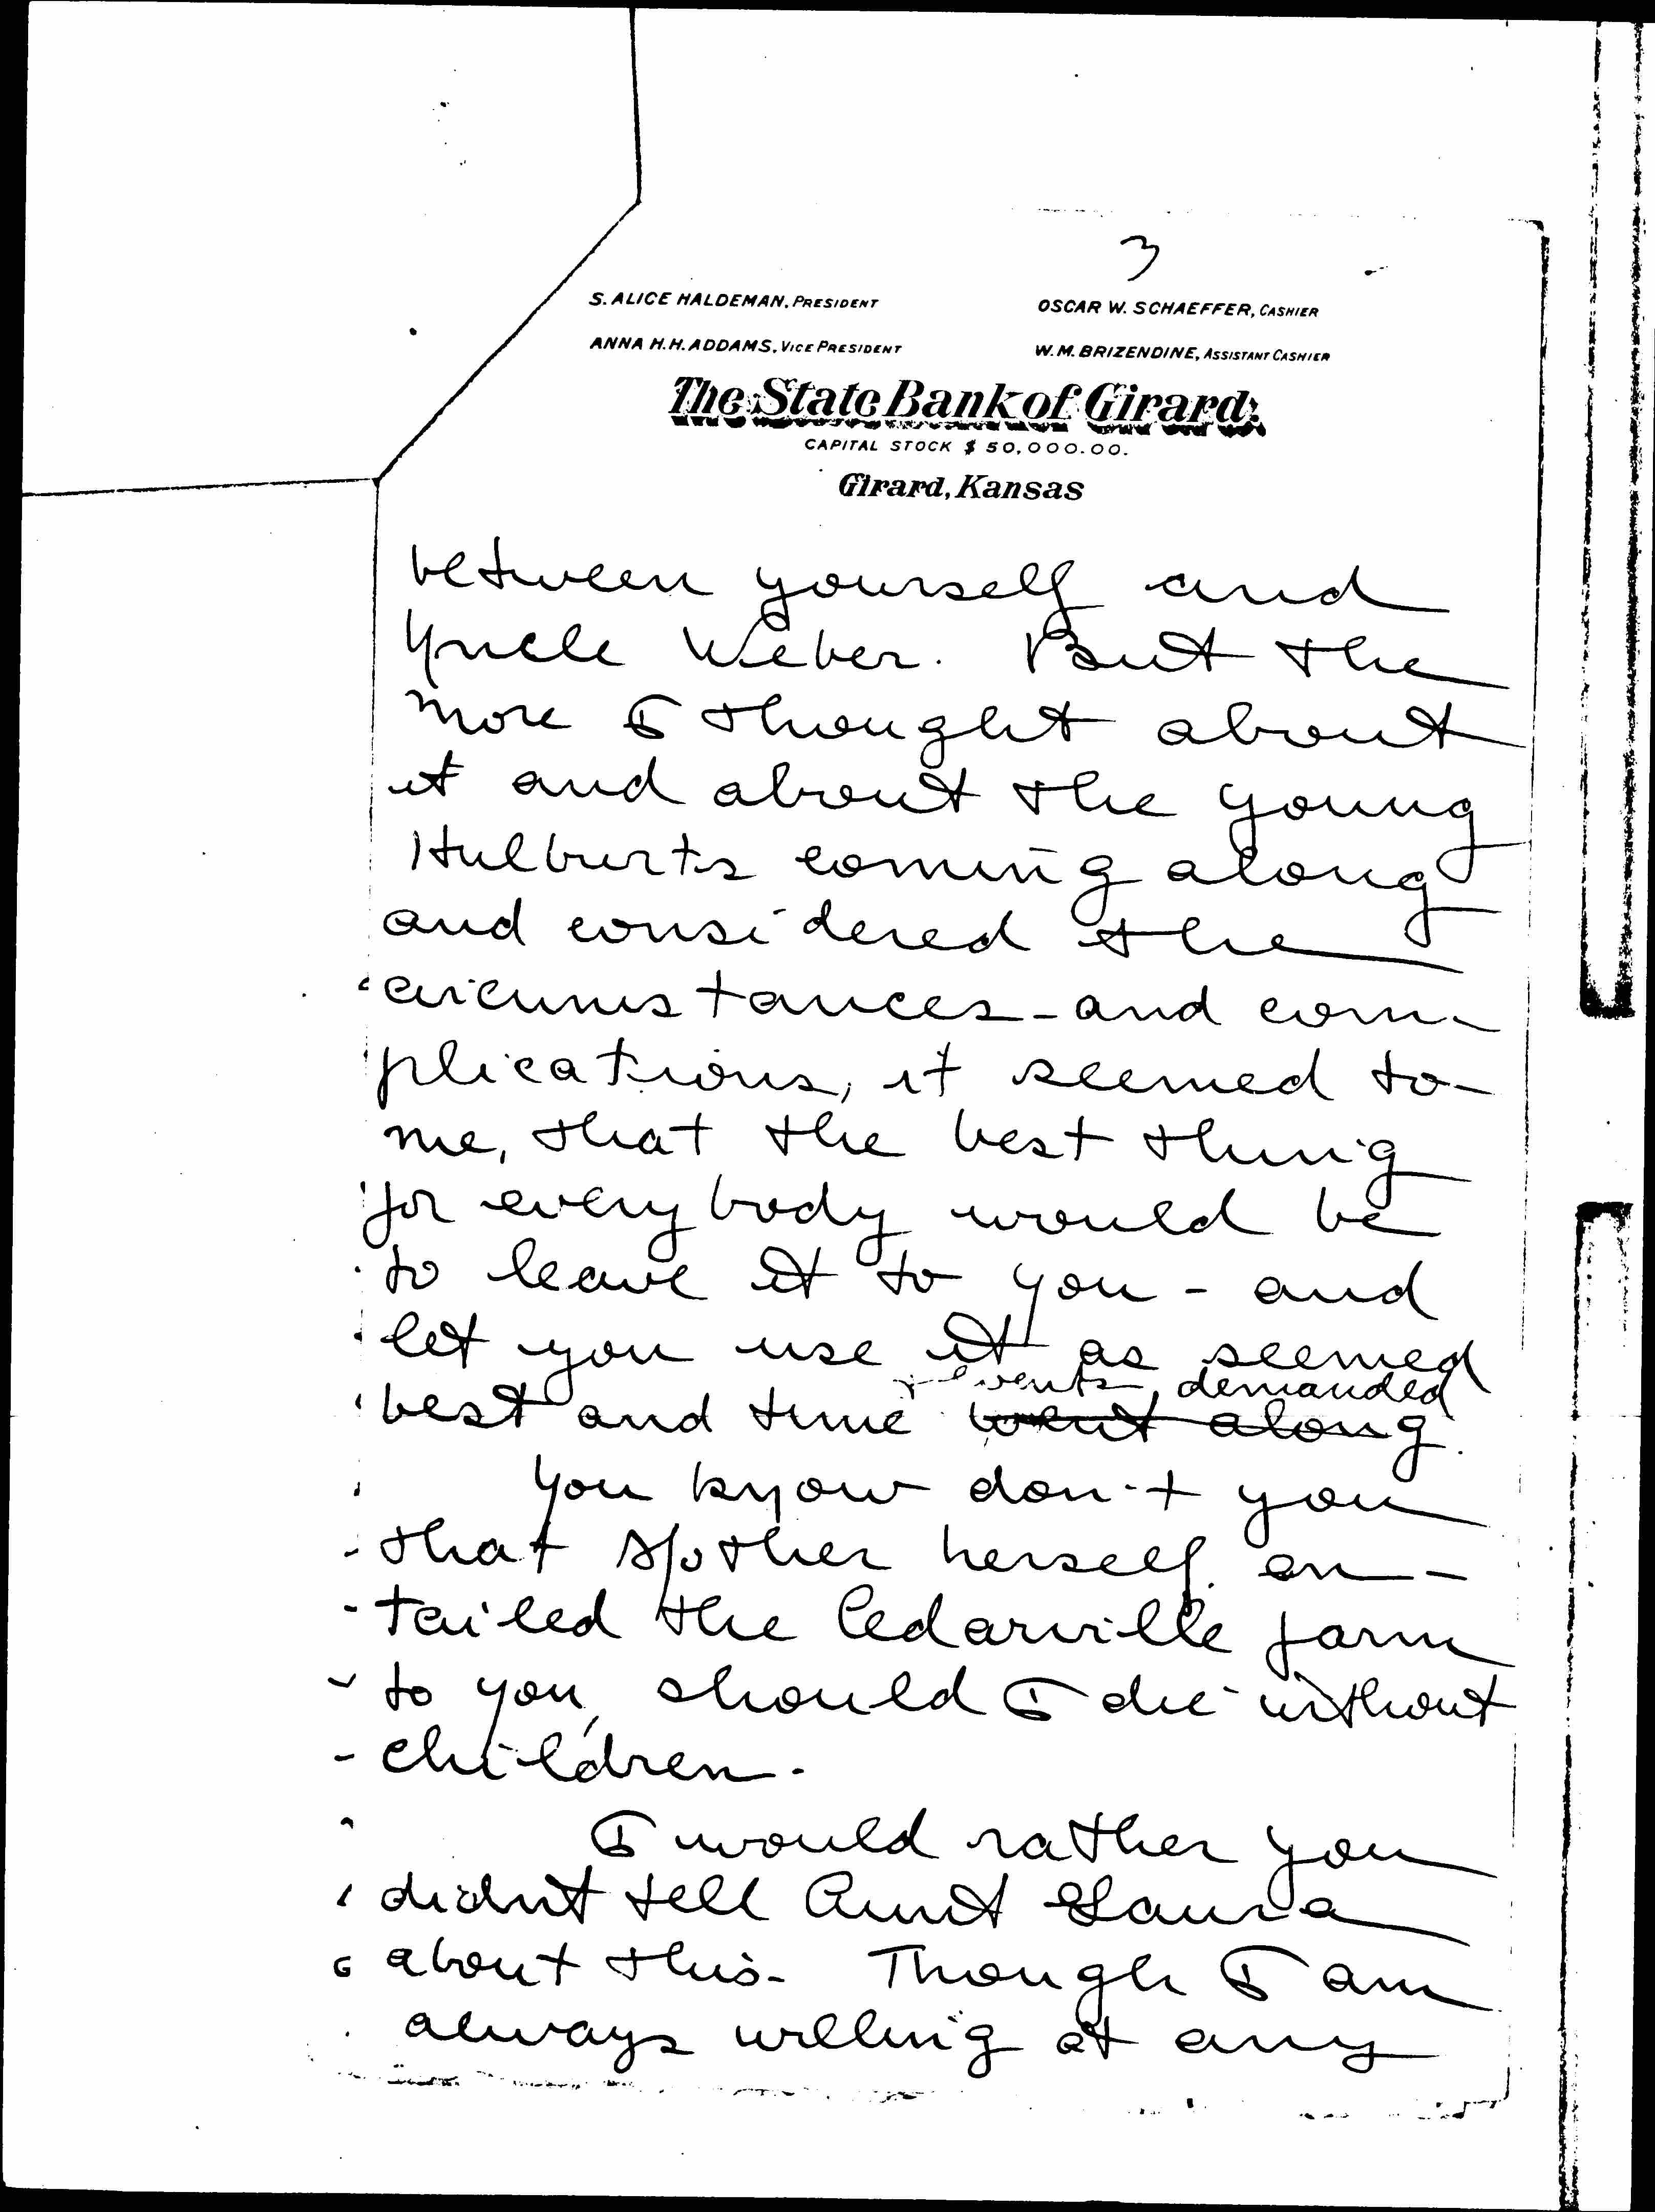 3
S. ALICE HALDEMAN, PRESIDENT OSCAR W. SCHAEFFER, CASHIER
ANNA H.H. ADDAMS, VICE PRESIDENT W.M. BRIZENDINE, ASSISTANT CASHIER
The State Bank of Girard,
CAPITAL STOCK $ 50,000.00.
Girard, Kansas
between yourself and
Uncle Weber. But the
more I thought about
it and about the young
Hulburts coming along
and considered the
circumstances - and com-
plications, it seemed to
me, that the best thing
for everybody would be
to leave it to you - and
let you use it as seemed
events, demanded
best and time went along.
You know don't you
that Mother herself en-
tailed the Cedarville farm
to you, should I die without
children.
I would rather you
didn't tell Aunt Laura
about this - Though I am
always willing at any